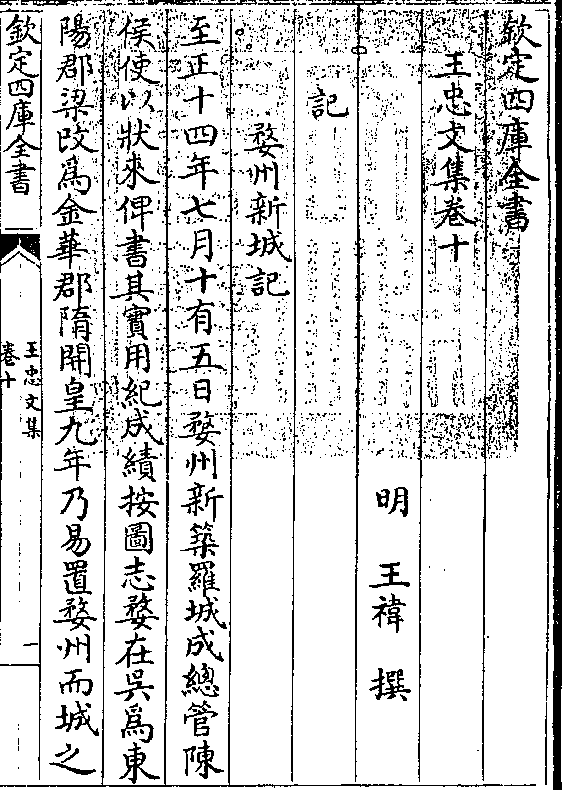 欽定四庫全書
王忠文集卷十
明 王禕 撰
記
婺州新城記
至正十四年七月十有五日婺州新築羅城成總管陳
侯使以狀來俾書其實用紀成績按圖志婺在吳爲東
陽郡梁改爲金華郡隋開皇九年乃易置婺州而城之
欽定四庫全書
王忠文集
卷十
一